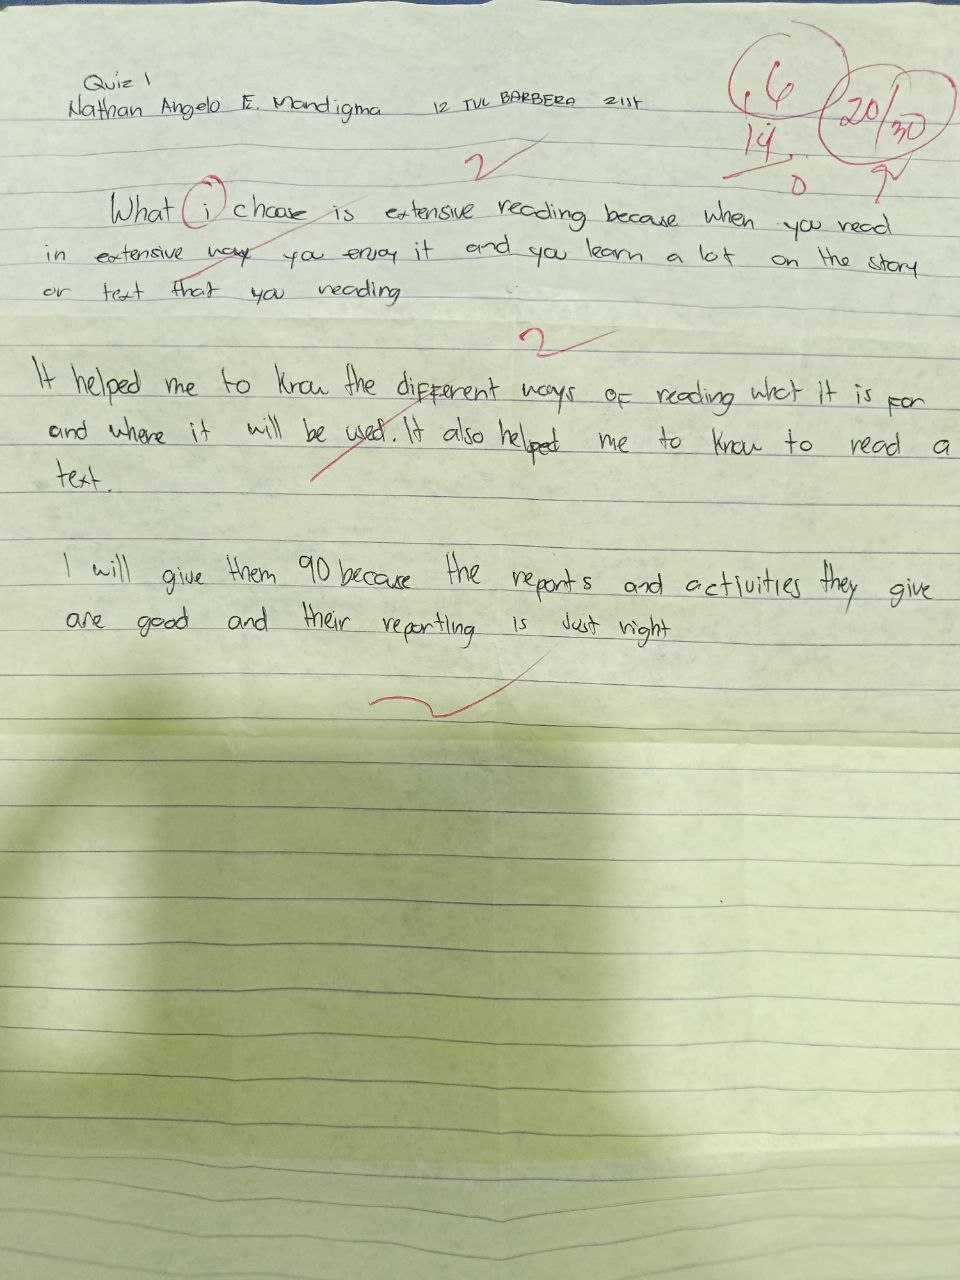 Quiz 1
Nathan Angelo E. Mandigma 12 TVL BARBERA 21st
6
20/30
14
0
2
What i choose is extensive reading because when you read
in extensive way you enjoy it and you learn a lot on the story
or text that you reading
2
It helped me to know the different ways of reading what it is for
and where it will be used. It also helped me to know to read a
text.
I will give them 90 becase the reports and activities they give
are good and their reporting is Just right